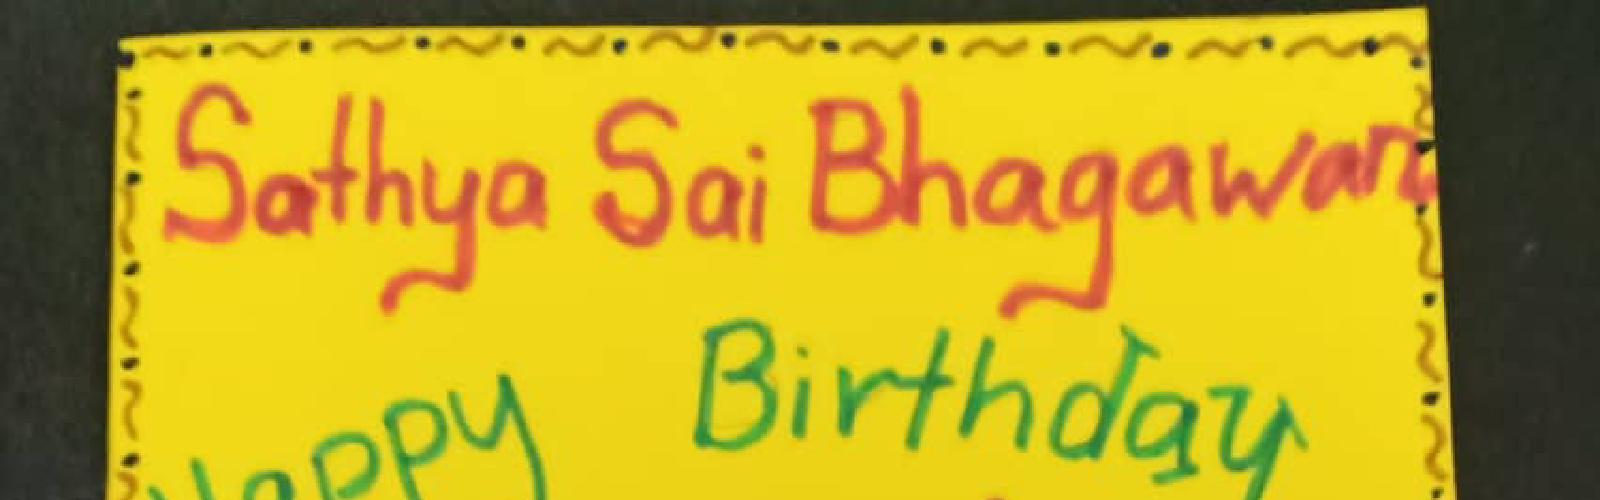 Sathya Sai Bhagawan
Happy Birthday